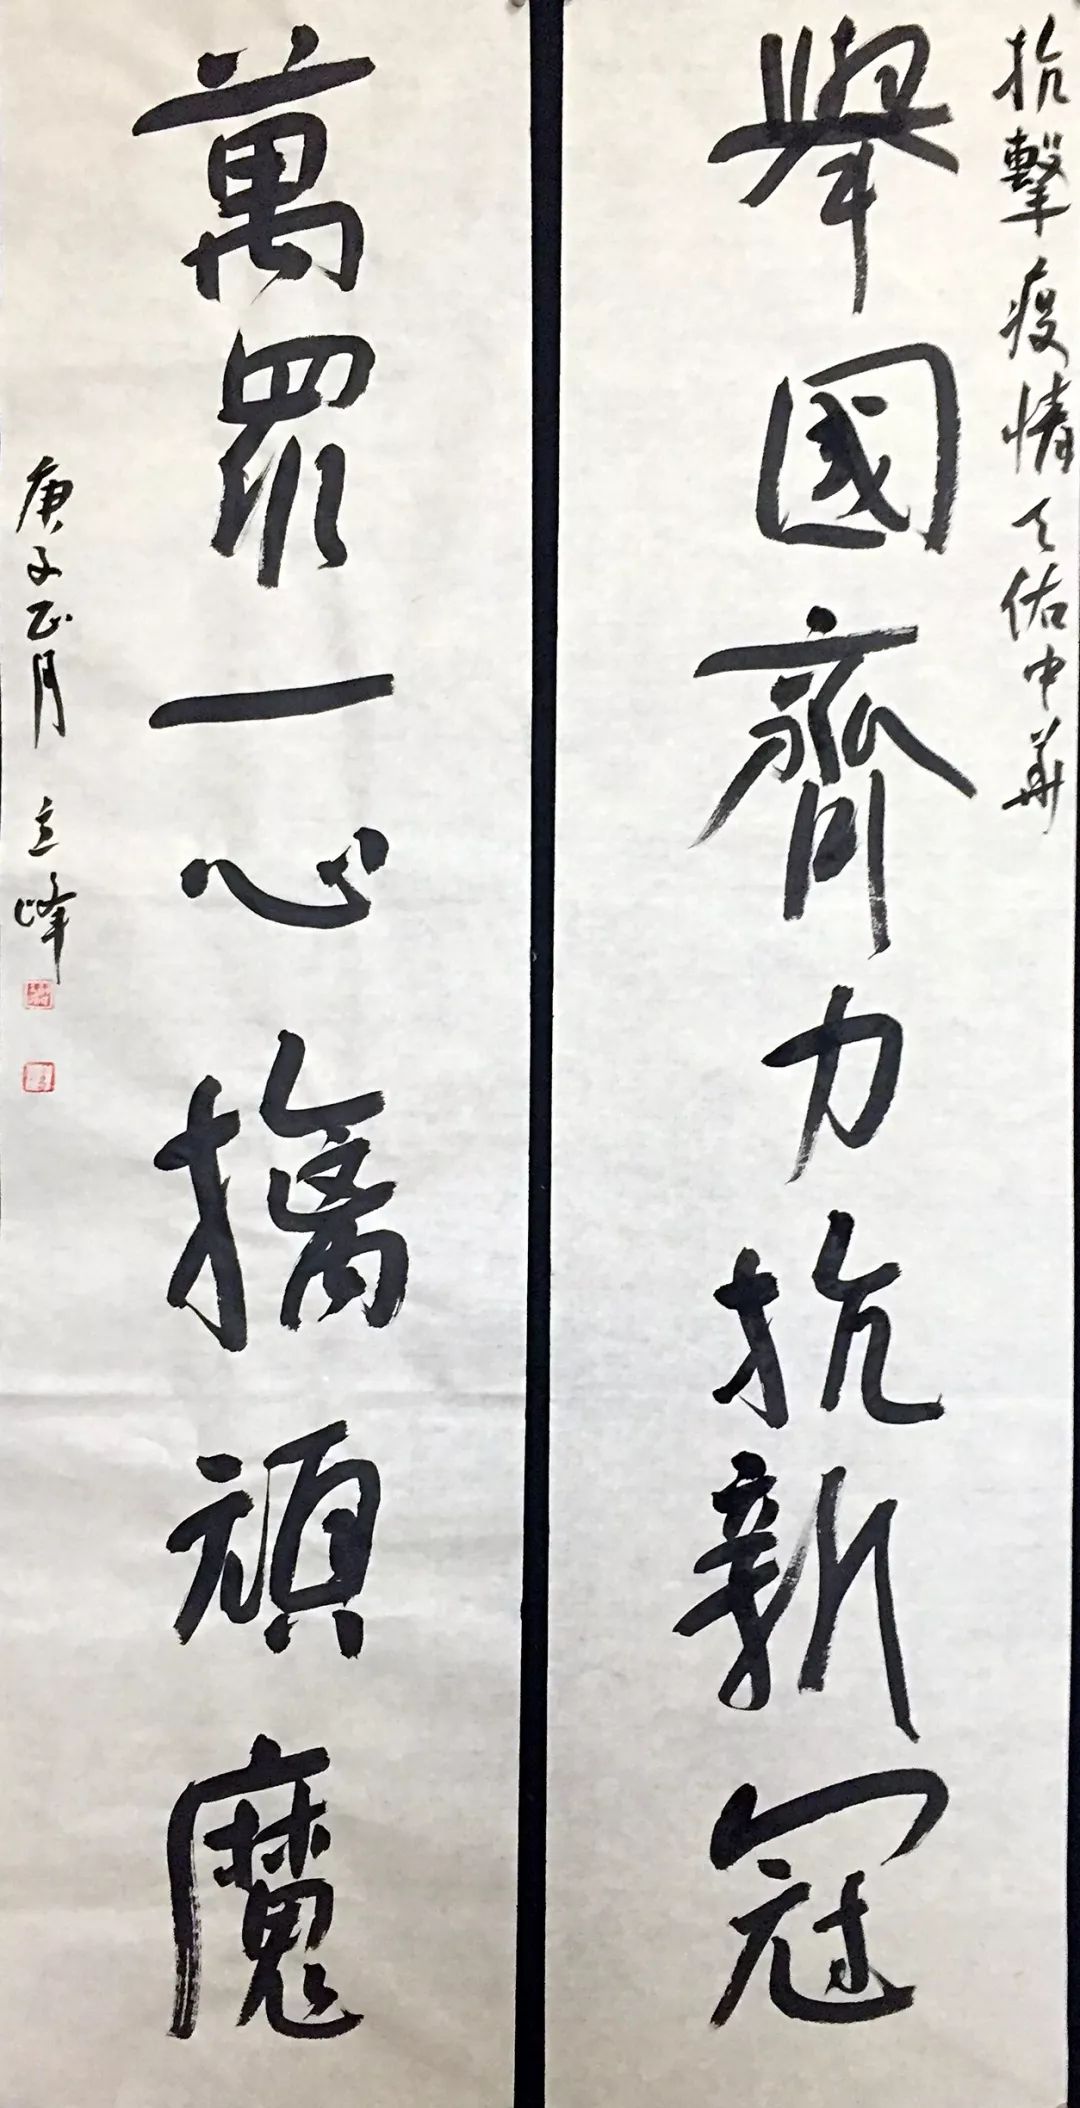 抗擊疫情天佑中華
舉國齊力抗新冠
萬眾一心擒頑魔
庚子正月 立峰